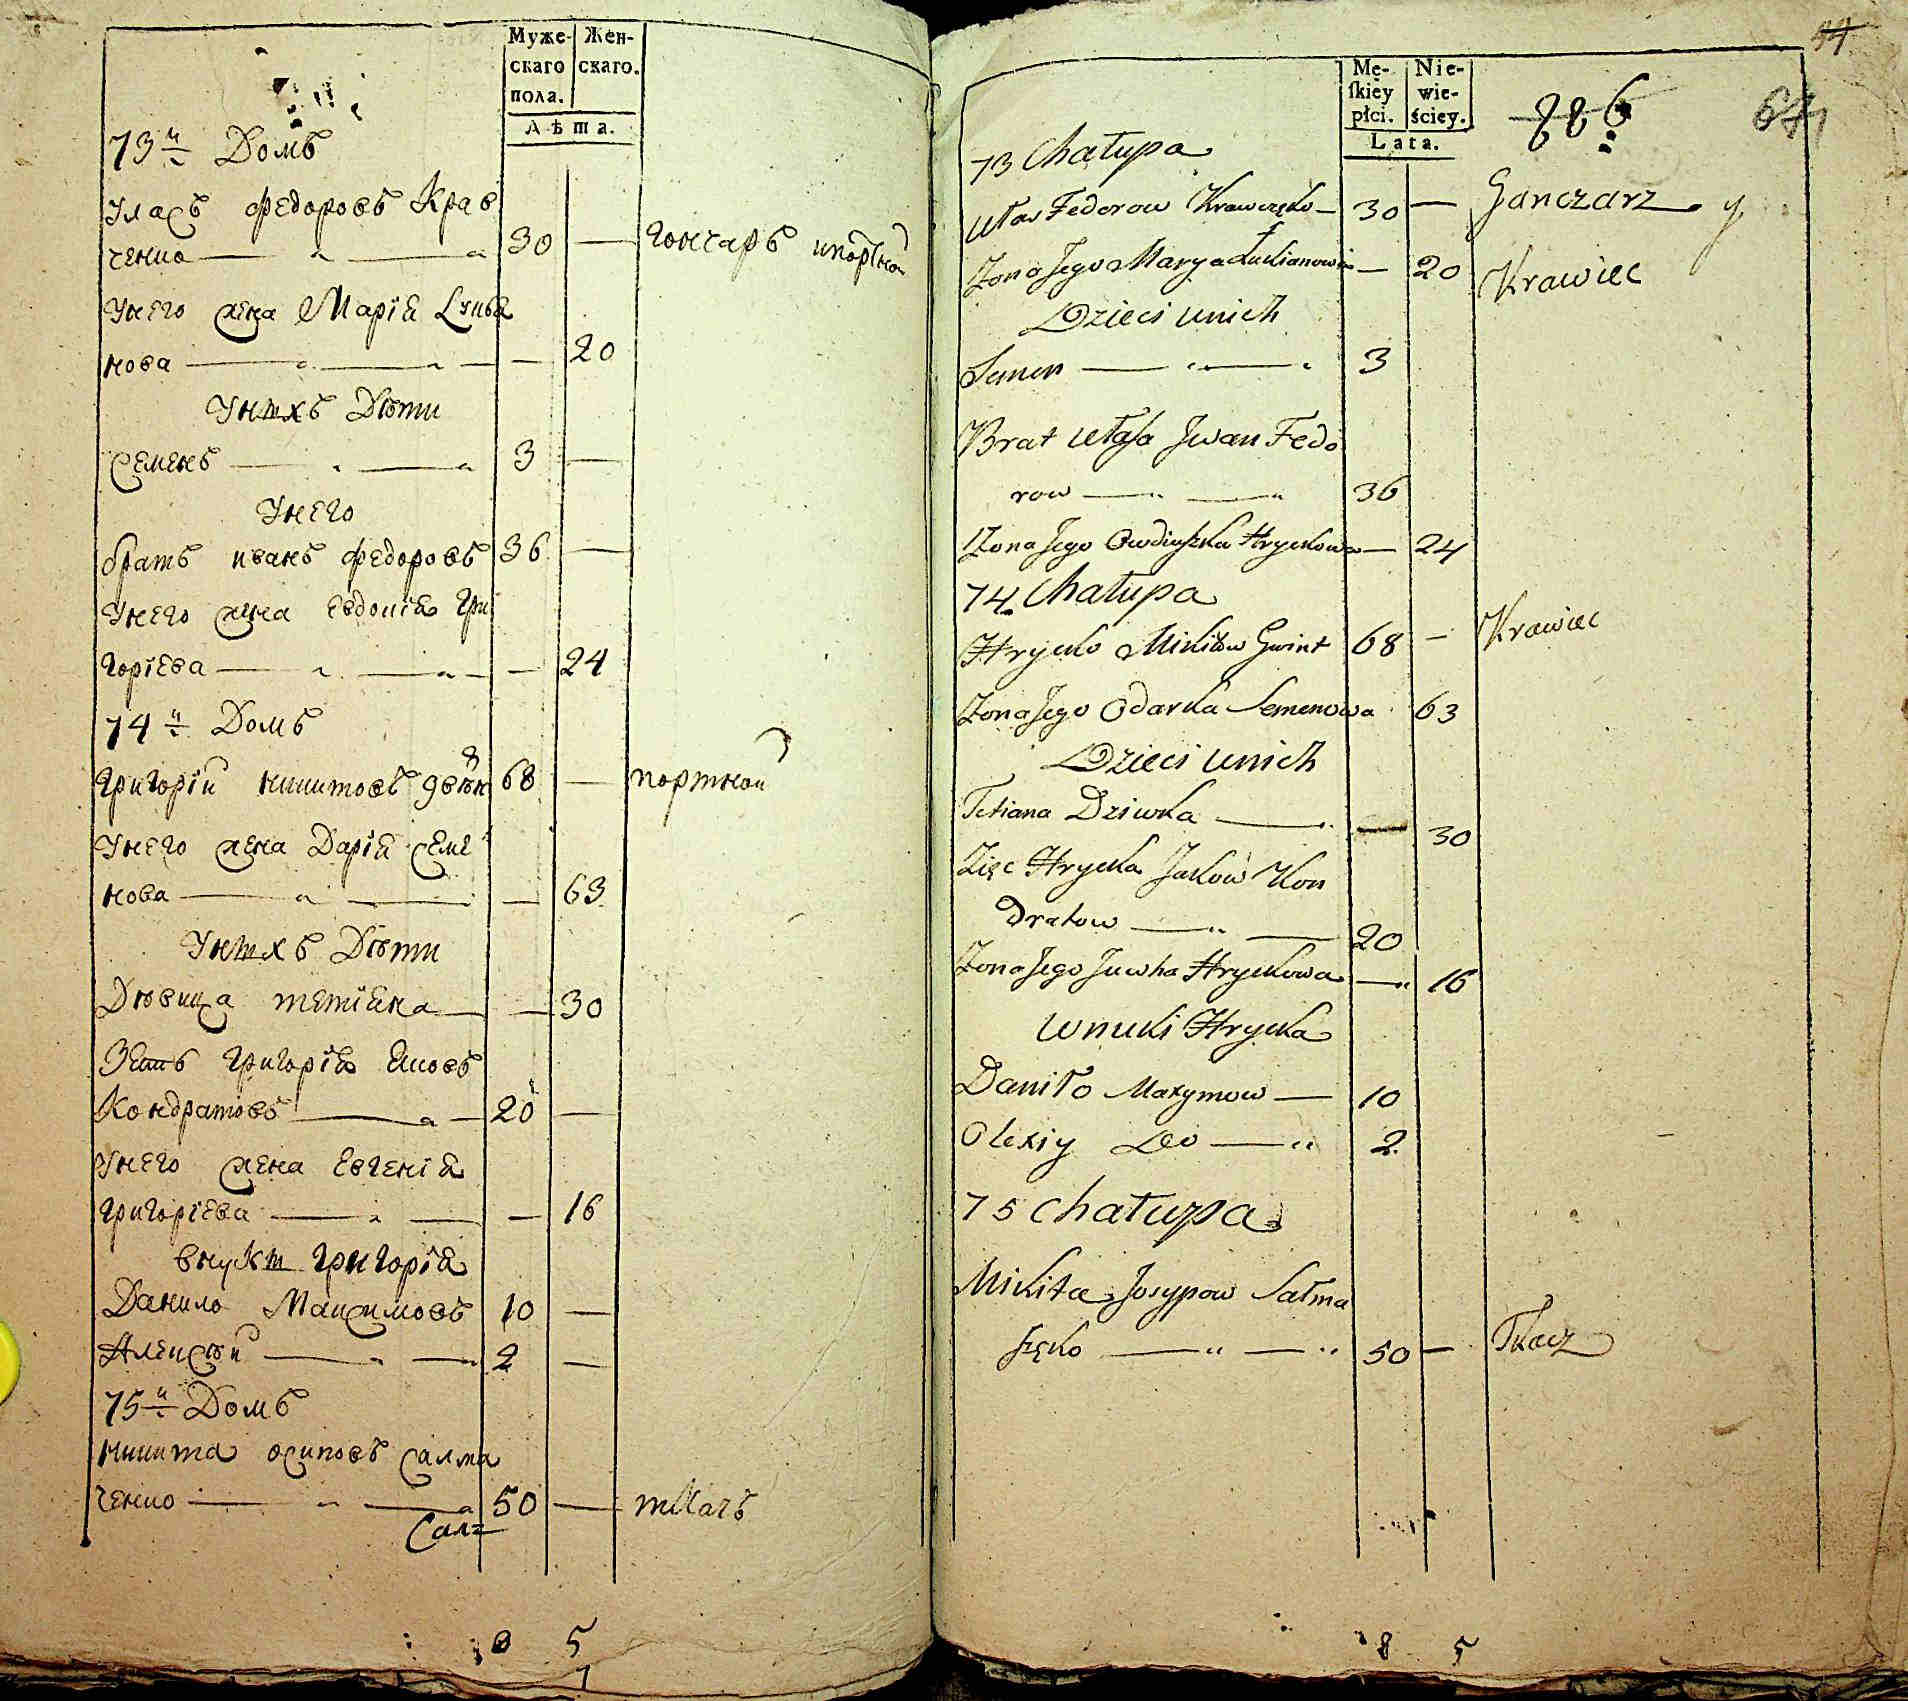 Муже- Жен-
скаго скаго.
пола.
Лѣта.
73й Домъ
Уласъ Федоровъ Крав
ченко 30 — гончаръ ипортной
Унего жена Марїя Лукья
нова — 20
Унихъ Дѣти
Семенъ 3 —
Унего
братъ иванъ федоровъ 36 —
Унего жена Евдокїя Гри
горїева — 24
74й Домъ
Григорїй никитовъ 68 — портной
Унего жена Дарїя Семе
нова — 63
Унихъ Дѣти
Дѣвица тетїяна — 30
Зять Григорїя Яковъ
Кондратовъ 20 —
Унего жена Евгенїя
Григорїева — 16
внуки Григорїя
Данило Максимовъ 10 —
Алексѣй 2 —
75й Домъ
никита осиповъ Салма
ченко 50 — ткачъ
Сал=
8 5
94
Mę- Nie-
skiey wie-
płci. ściey.
Lata.
226
73 Chałupa
Ułas Fedorow Krawczęko — 30 — Ganczarz y
Zona Jego Marya Łukianowa — 20 Krawiec
Dzieci unich
Semen 3
Brat Ułasa Jwan Fedo
row 36
Zona Jego Owdiuszka Hryckowa — 24
74 Chałupa
Hrycko Mikitow Gwint 68 — Krawiec
Zona Jego Odarka Semenowa 63
Dzieci unich
Tetiana Dziwka — 30
Zięc Hrycka Jakow Kon
dratow 20
Zona Jego Juwha Hryckowa — 16
Wnuki Hrycka
Daniło Maxymow — 10
Olexiy 2
75 Chałupa
Mikita Josypow Sałma
szęko 50 — Tkacz
8 5